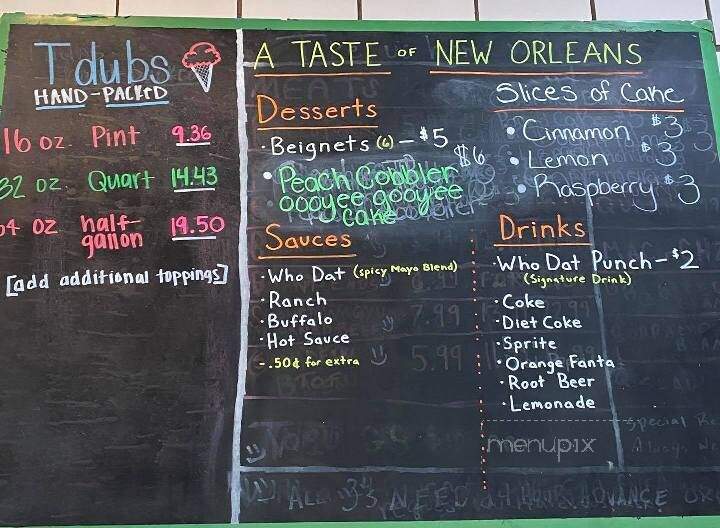 Tdubs
HAND-PACKED
16 oz. Pint 9.36
32 oz Quart 14.43
64 oz half-gallon 19.50
[add additional toppings]
A TASTE OF NEW ORLEANS
Desserts
· Beignets (6) - $5
· Peach Cobbler $6
· oooyee gooyee
cake
Slices of Cake
· Cinnamon $3
· Lemon $3
· Raspberry $3
Sauces
· Who Dat (spicy Mayo Blend)
· Ranch
· Buffalo
· Hot Sauce
- .50¢ for extra
Drinks
· Who Dat Punch - $2
(Signature Drink)
· Coke
· Diet Coke
· Sprite
· Orange Fanta
· Root Beer
· Lemonade
menupix
7.99
5.99
ALL NEED HOUR ADVANCE